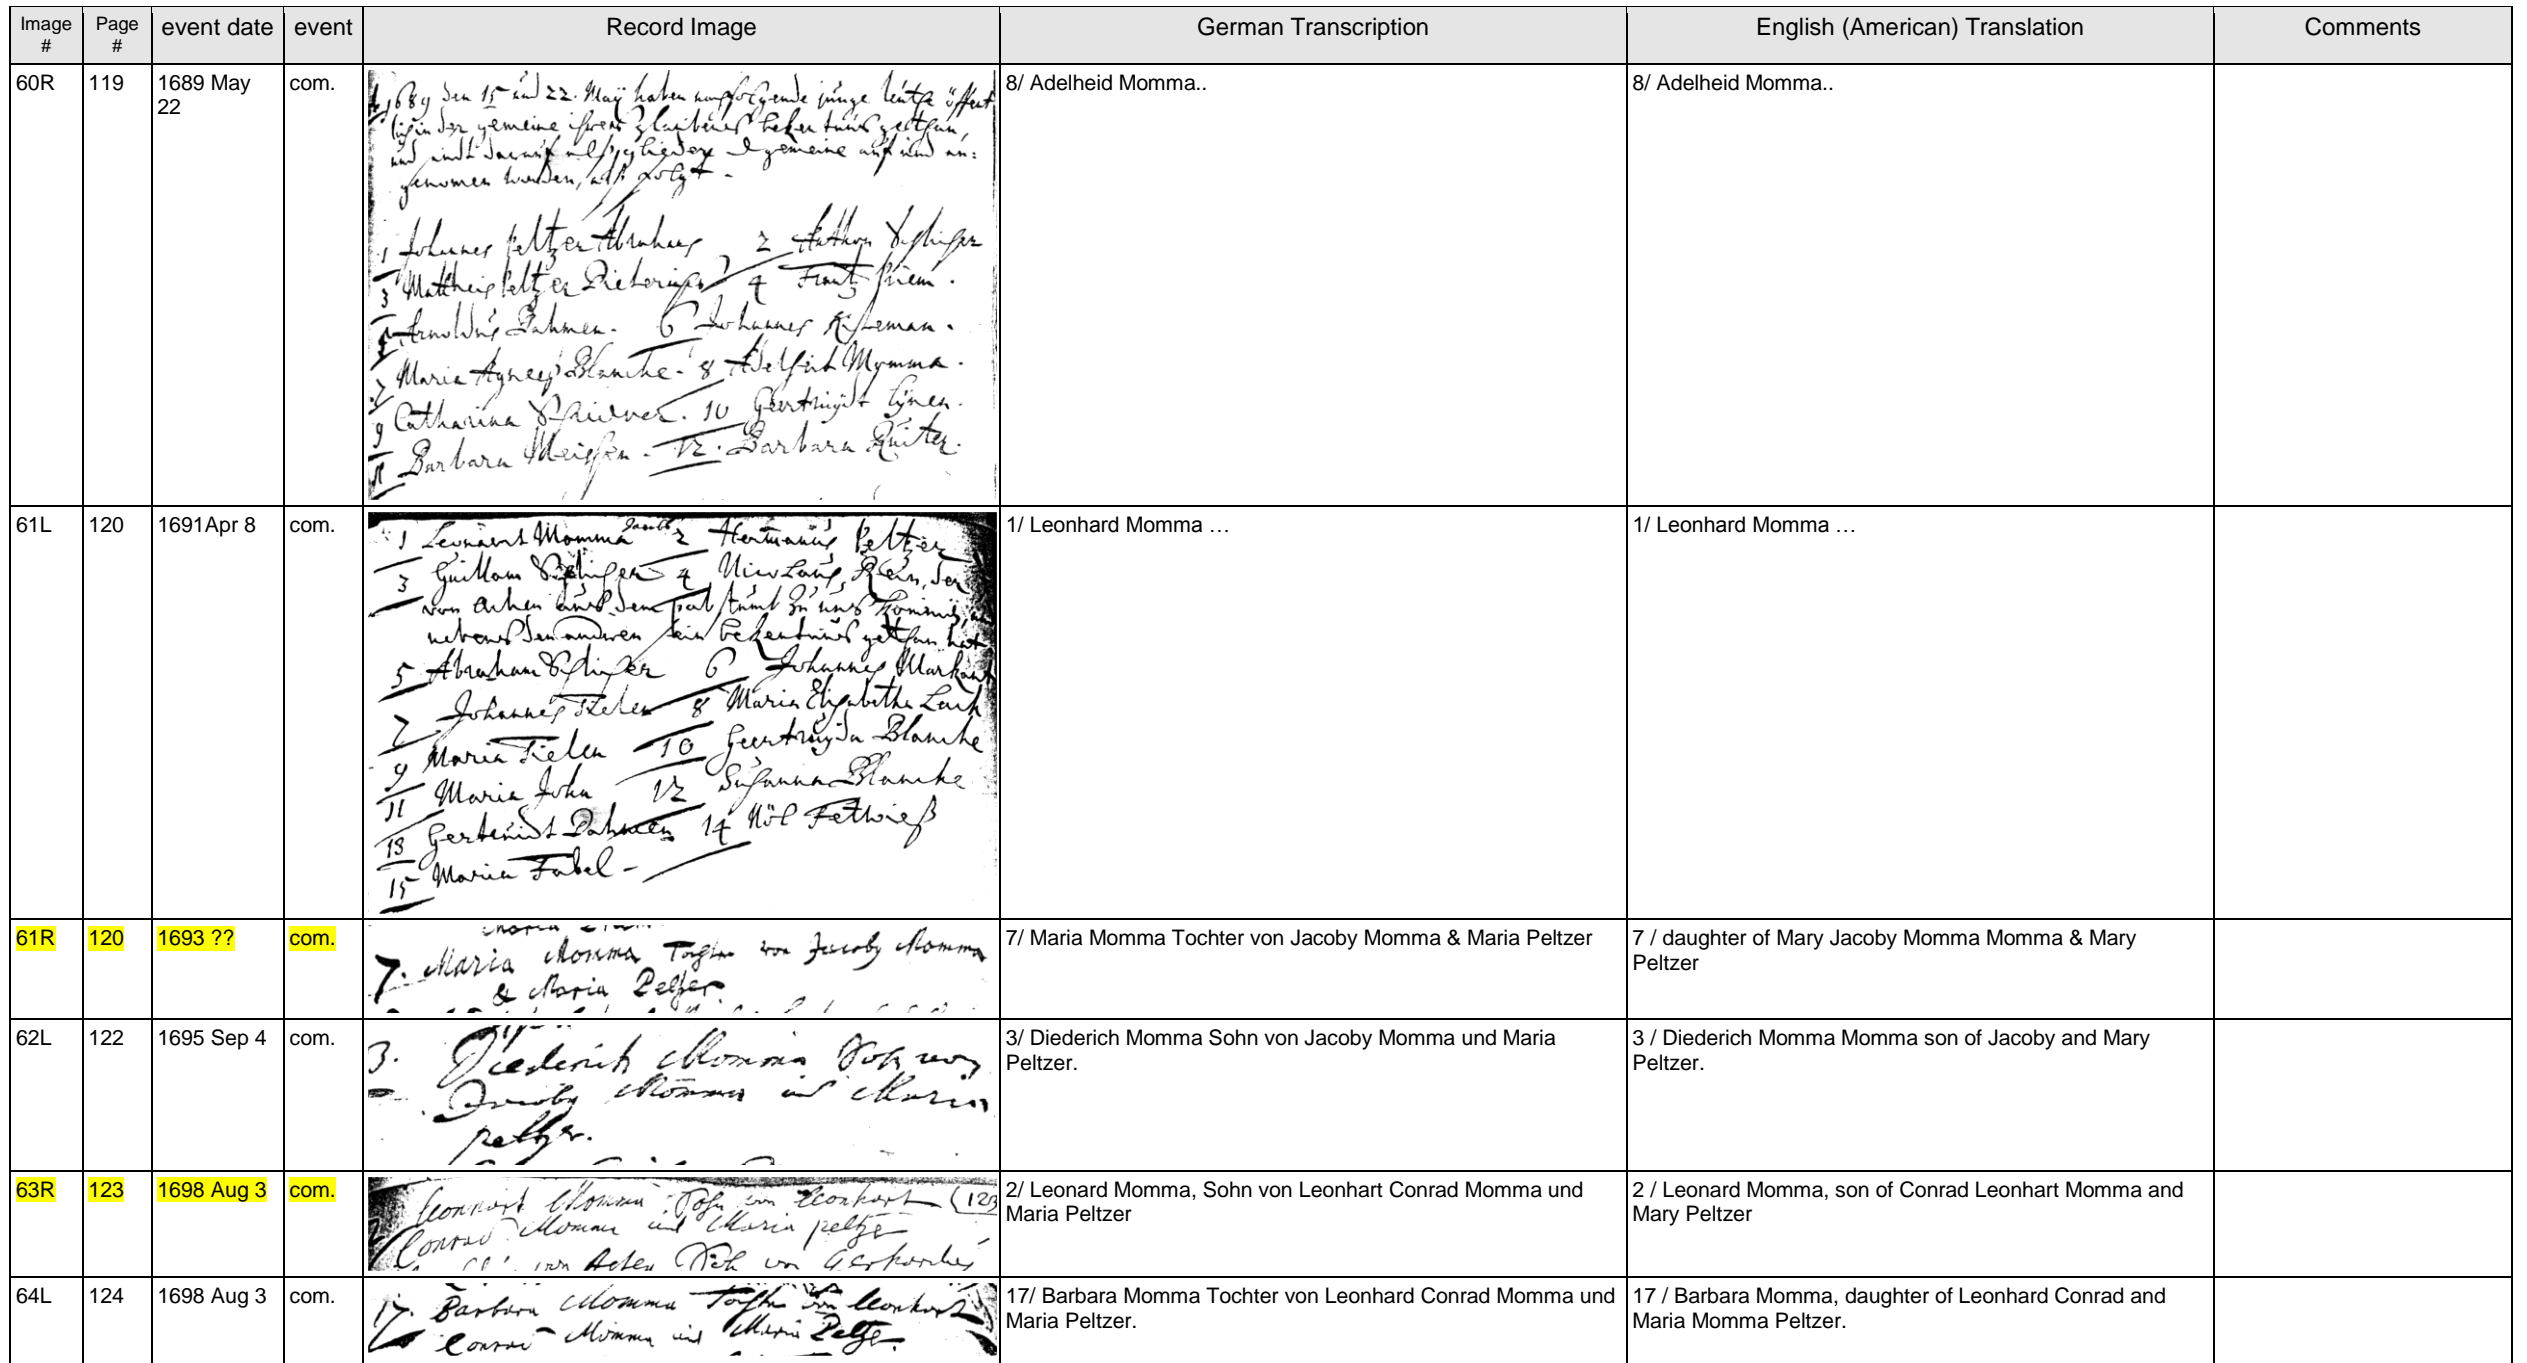 Image # Page # event date event Record Image German Transcription English (American) Translation Comments
60R 119 1689 May 22 com.
1689 den 15 und 22. Maÿ haben nachfolgende junge leuthe öffent
lich in der gemeine ihres glaubens bekentnus gethan,
und sindt darauf alß glieder d gemeine auf und an:
genomen worden, alß folgt -
1 Johannes Peltzer Abrahams 2 Anthon
3 Mattheis Peltzer 4 Frantz
Arnoldus Dahmen. 6 Johannes
7 Maria Agnees Blanche. 8 Adelheit Momma.
9 Catharina 10 Geertruÿdt Lÿnen.
11 Barbara 12. Barbara Ruiter.
8/ Adelheid Momma..
8/ Adelheid Momma..
61L 120 1691Apr 8 com.
1 Leonaert Momma Jacobs 2 Hermanus Peltzer
3 Guillam 4 Nicolaus Klein, der
von Achen aus dem pabstumb zu uns kommen,
nebens den anderen sein bekentnus gethan hat
5 Abraham 6 Johannes
7 Johannes Tielen 8 Maria Elisabetha
9 Maria Tielen 10 Geertruÿda Blanche
11 Maria John 12 Susanna Blanche
13 Gertruidt Dahmen 14 Nöl Fettwieß
15 Maria Fabel -
1/ Leonhard Momma …
1/ Leonhard Momma …
61R 120 1693 ?? com.
7. Maria Momma Tochter von Jacoby Momma
& Maria Peltzer.
7/ Maria Momma Tochter von Jacoby Momma & Maria Peltzer
7 / daughter of Mary Jacoby Momma Momma & Mary
Peltzer
62L 122 1695 Sep 4 com.
3. Diederich Momma Soh von
Jacoby Momma und Maria
peltzer.
3/ Diederich Momma Sohn von Jacoby Momma und Maria
Peltzer.
3 / Diederich Momma Momma son of Jacoby and Mary
Peltzer.
63R 123 1698 Aug 3 com.
Leonhart Momma Sohn von Leonhart (123
Conrad Momma und Maria peltze
von Achen Soh von Gerhardus
2/ Leonard Momma, Sohn von Leonhart Conrad Momma und
Maria Peltzer
2 / Leonard Momma, son of Conrad Leonhart Momma and
Mary Peltzer
64L 124 1698 Aug 3 com.
17. Barbara Momma Tochter von Leonhart
Conrad Momma und Maria Peltze.
17/ Barbara Momma Tochter von Leonhard Conrad Momma und
Maria Peltzer.
17 / Barbara Momma, daughter of Leonhard Conrad and
Maria Momma Peltzer.